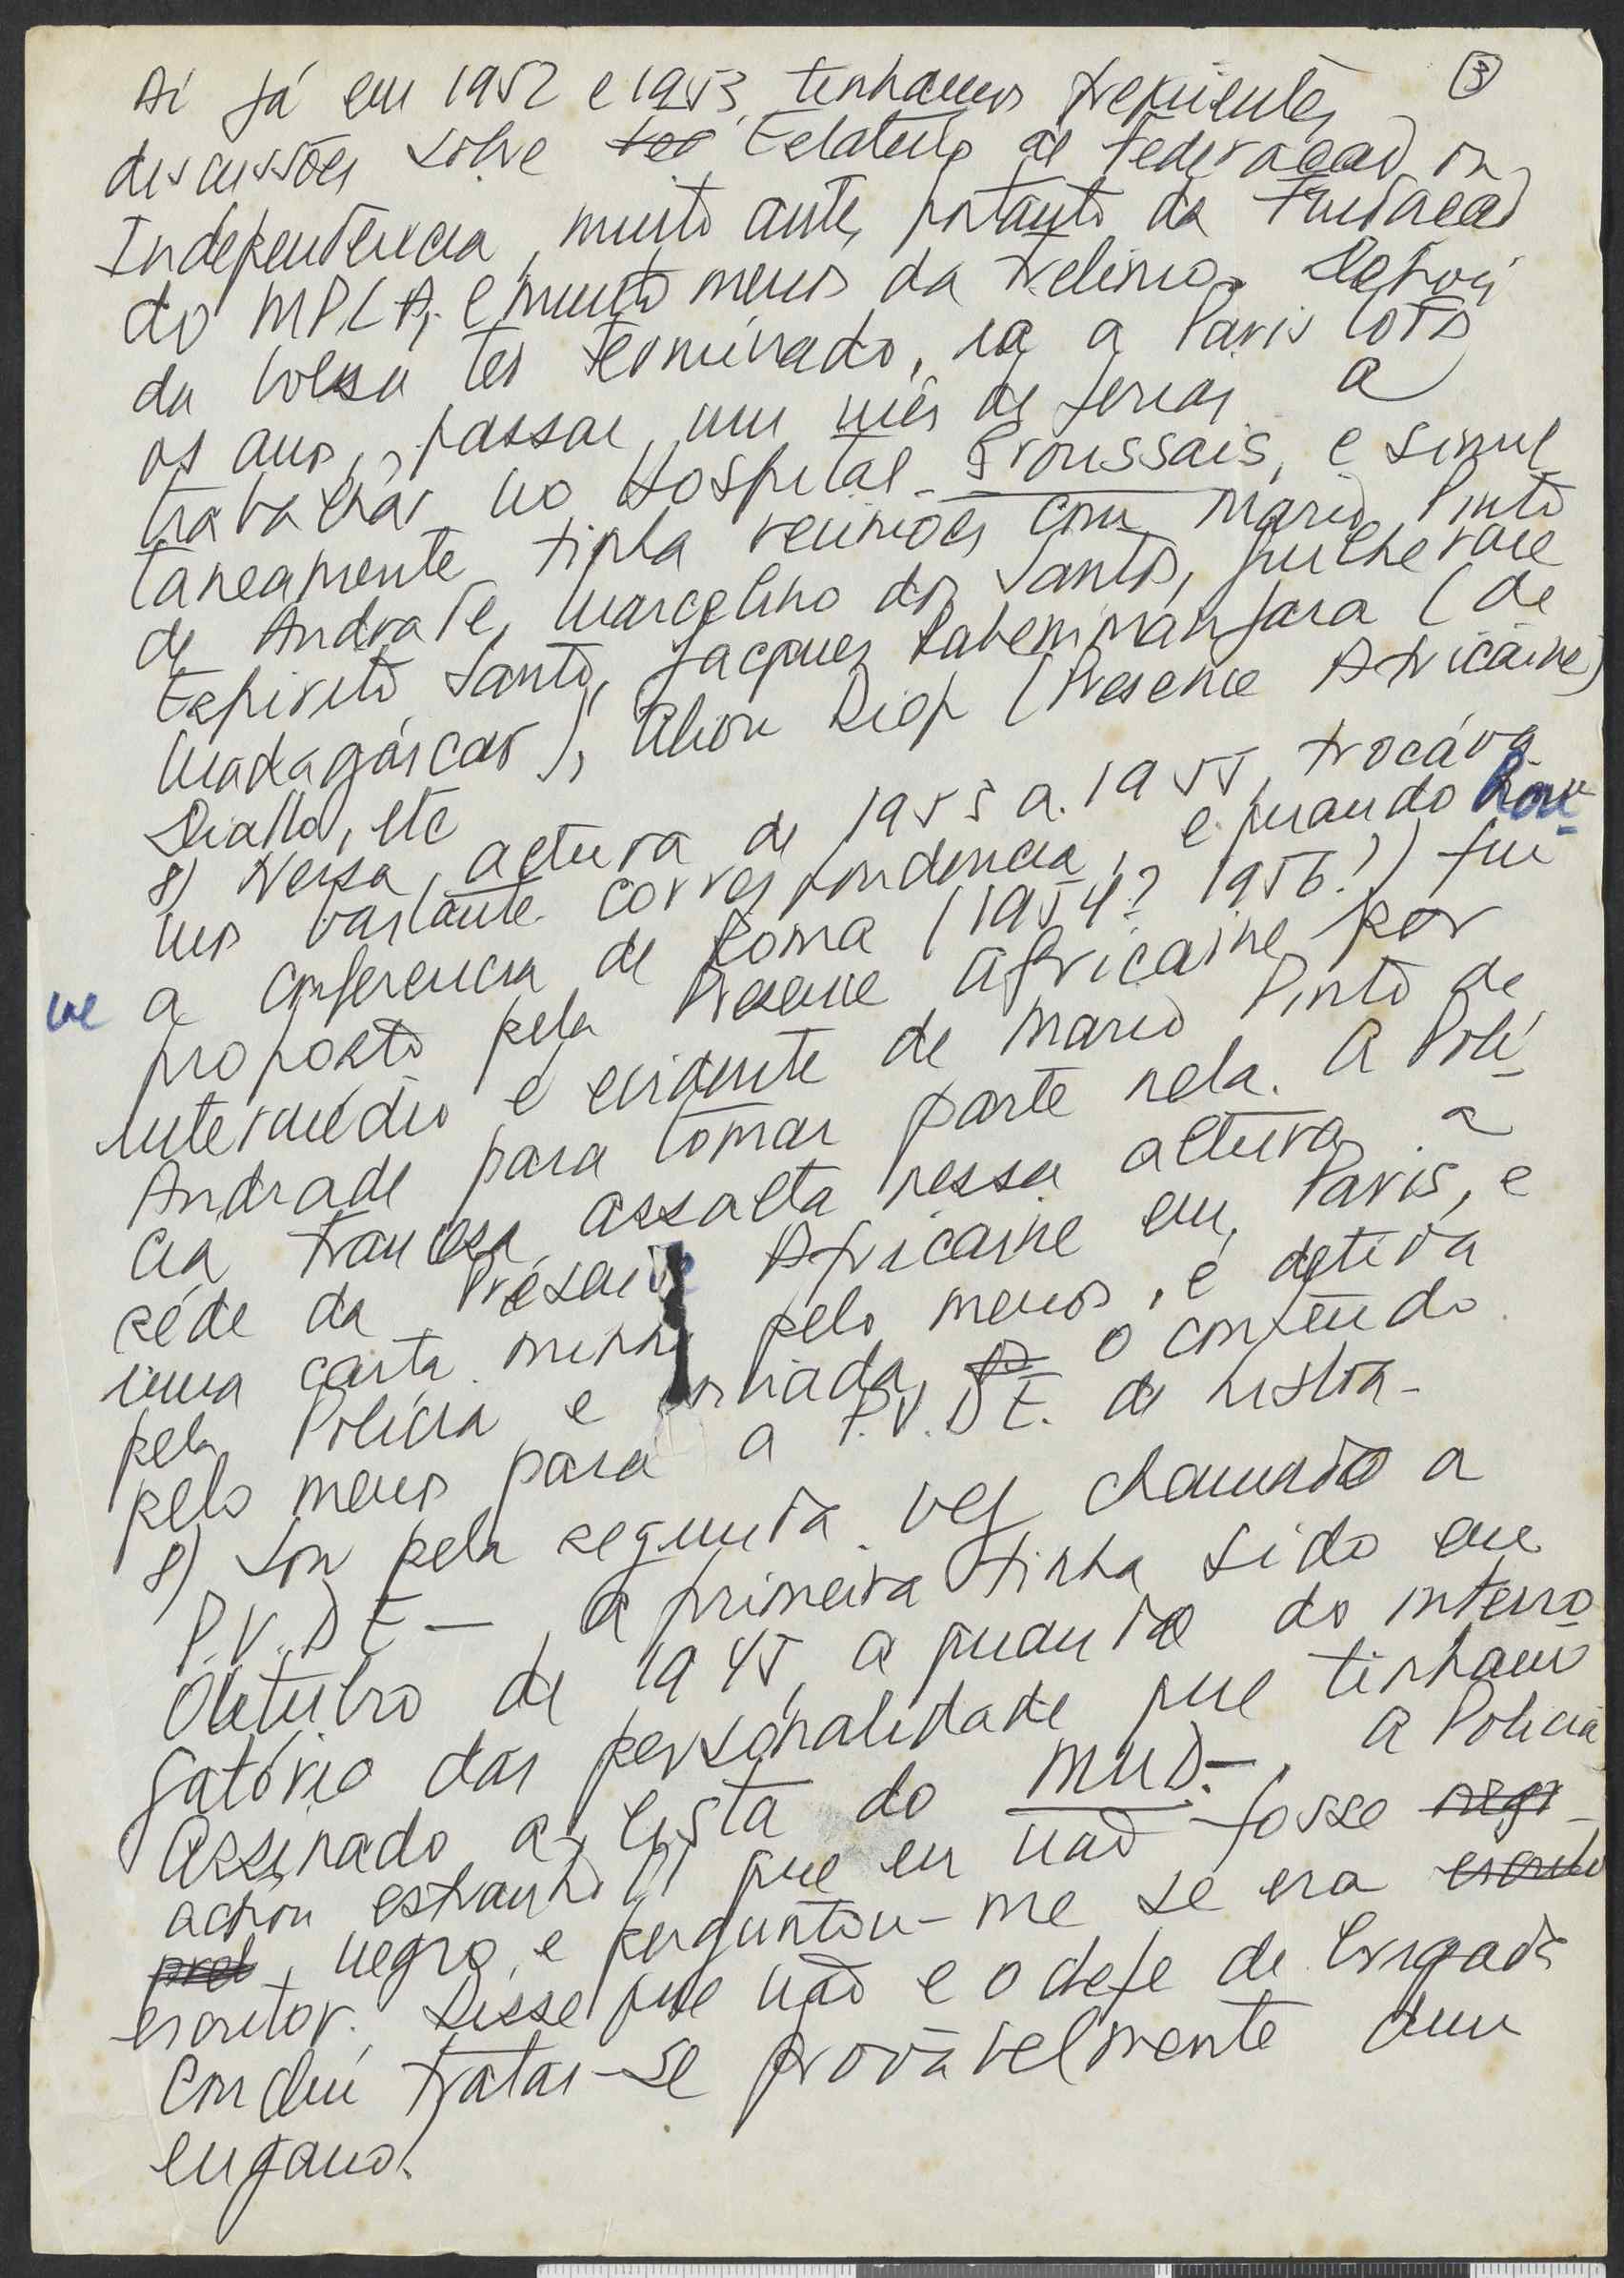 3
Aí já em 1952 e 1953, tinhamos frequentes
discussões sobre Estatuto de Federação ou
Independência, muito antes, portanto da Fundação
do MPLA, e muito menos da Frelimo. Depois
da bolsa ter terminado, ia a Paris todos
os anos, passar um mês de ferias a
trabalhar no Hospital Broussais, e simul
taneamente tinha reuniões com Mario Pinto
de Andrade, Marcelino dos Santos, Guilherme
Espirito Santo, Jacques Rabemmanjara (de
Madagáscar), Alion Diop (Presence Africaine)
Diallo, etc
8) Nessa altura de 1953 a 1955, trocáva
mos bastante correspondencia, e quando hou-
ve a conferencia de Roma (1954? 1956?) fui
proposto pela Presence Africaine por
intermédio é evidente de Mario Pinto de
Andrade para tomar parte nela. A Polí-
cia francesa, assalta nessa altura, a
séde da Présence Africaine em Paris, e
uma carta minha pelo menos, é detida
pela Polícia e enviada, o conteúdo
pelo menos para a P.V.D.E. de Lisboa-
8) Sou pela segunda vez chamado a
P.V.D.E - a primeira tinha sido em
Outubro de 1945, a quando do interro
gatório das personalidade que tinham
assinado a lista do MUD-. A Policia
achou estranho que eu não fosse negr
pret negro, e perguntou-me se era
escritor. Disse que não e o chefe de brigada
concluiu tratar-se provàvelmente dum
engano.